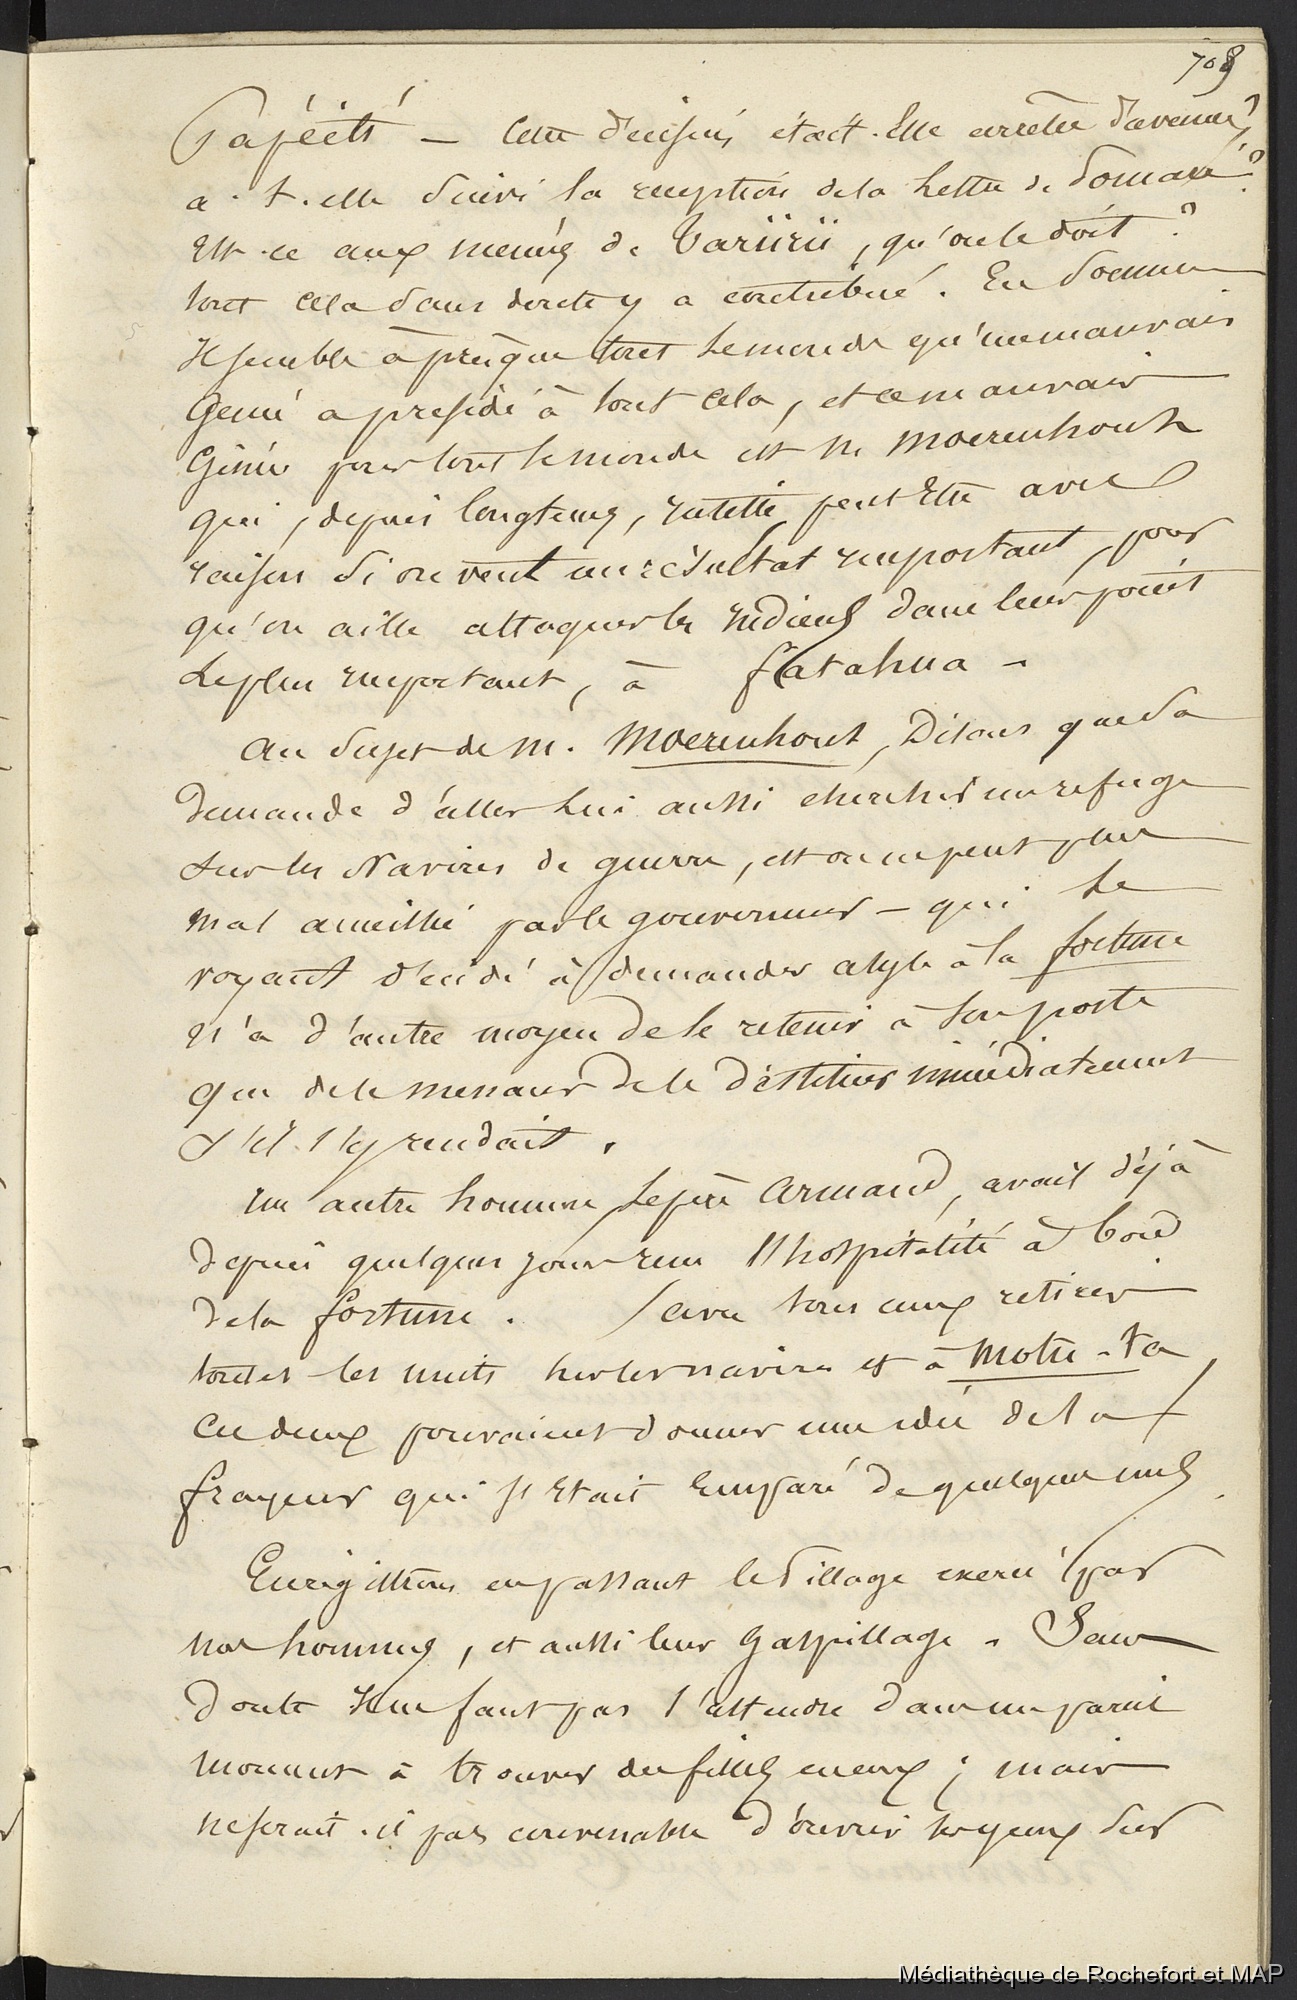 709
Papéiti — Cette décision était-Elle arrêtée d'avance?
a-t-elle suivi la reception de la Lettre de Pomaré?
Est-ce aux menées de Tariirii, qu'on le doit?
tout cela sans doute y a contribué. En somme
Il semble à presque tout le monde qu'un mauvais
Genie a présidé à tout cela, et ce mauvais
Génie pour tout le monde est Mr Moerenhout
qui, depuis longtems, repette peut Etre avec
raison si on veut un résultat important, pour
qu'on aille attaquer les Indiens dans leur point
le plus important, à fatahua –
au sujet de M. Moerenhout, Disons que sa
demande d'aller lui aussi chercher un refuge
sur les Navires de guerre, est on ne peut plus
mal acueillie par le gouverneur – qui le
voyant décidé à demander asyle à la fortune
n'a d'autre moyen de le retenir à son poste
que de le menacer de le déstituer immédiatement
s'il s'y rendait.
un autre homme le père Armand, avait déjà
depuis quelques jours reçu l'hospitalité à bord
de la fortune. avec tous ceux retirés
toutes les nuits sur les navires et à Motu-Ta
ces deux pouvaient donner une idée de la
frayeur qui s'Etait Emparé de quelques uns
Enregistrons en passant le Pillage exercé par
nos hommes, et aussi leur Gaspillage. Sans
doute Il ne faut pas s'attendre dans un pareil
moment à trouver des filles en eux; mais
ne serait-il pas convenable d'ouvrir les yeux sur
Médiathèque de Rochefort et MAP